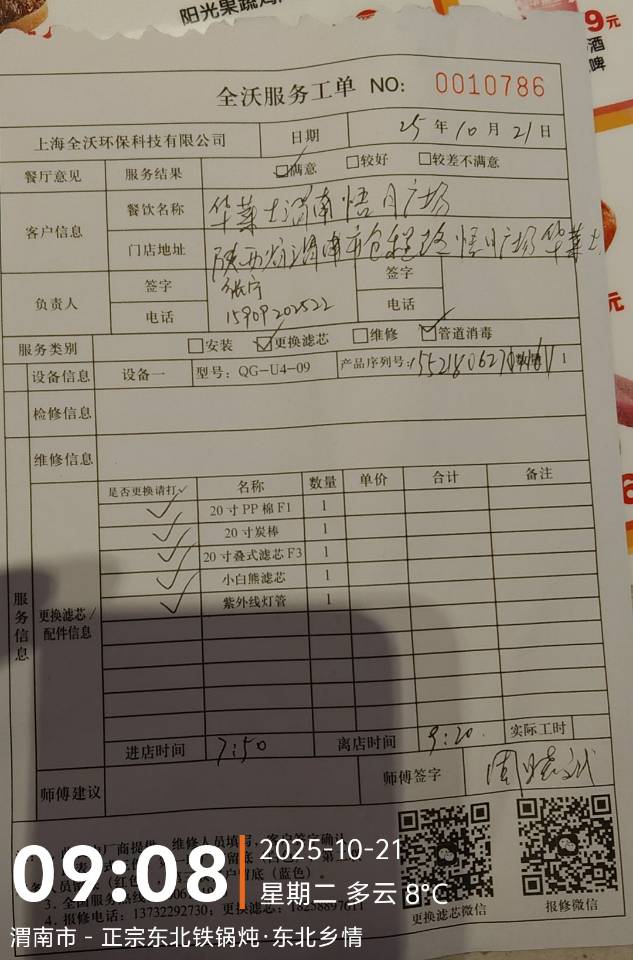 阳光果蔬鸡
9元
酒
啤
全沃服务工单 NO: 0010786
上海全沃环保科技有限公司 日期 25年10月21日
餐厅意见 服务结果 ☑满意 □较好 □较差不满意
客户信息 餐饮名称 华莱士渭南悟日广场
门店地址 陕西省渭南市仓程路悟日广场华莱士
负责人 签字 张宁 签字
电话 15909202522 电话
服务类别 □安装 ☑更换滤芯 □维修 ☑管道消毒
设备信息 设备一 型号: QG-U4-09 产品序列号:
检修信息
维修信息
服务信息 更换滤芯/配件信息
是否更换请打✓ 名称 数量 单价 合计 备注
✓ 20寸PP棉F1 1
✓ 20寸炭棒 1
✓ 20寸叠式滤芯F3 1
✓ 小白熊滤芯 1
✓ 紫外线灯管 1
进店时间 7:50 离店时间 9:20. 实际工时
师傅建议 师傅签字
更换滤芯微信 报修微信
4. 报修电话: 13732292730; 更换滤芯:
09:08
2025-10-21
星期二 多云 8℃
渭南市 - 正宗东北铁锅炖·东北乡情